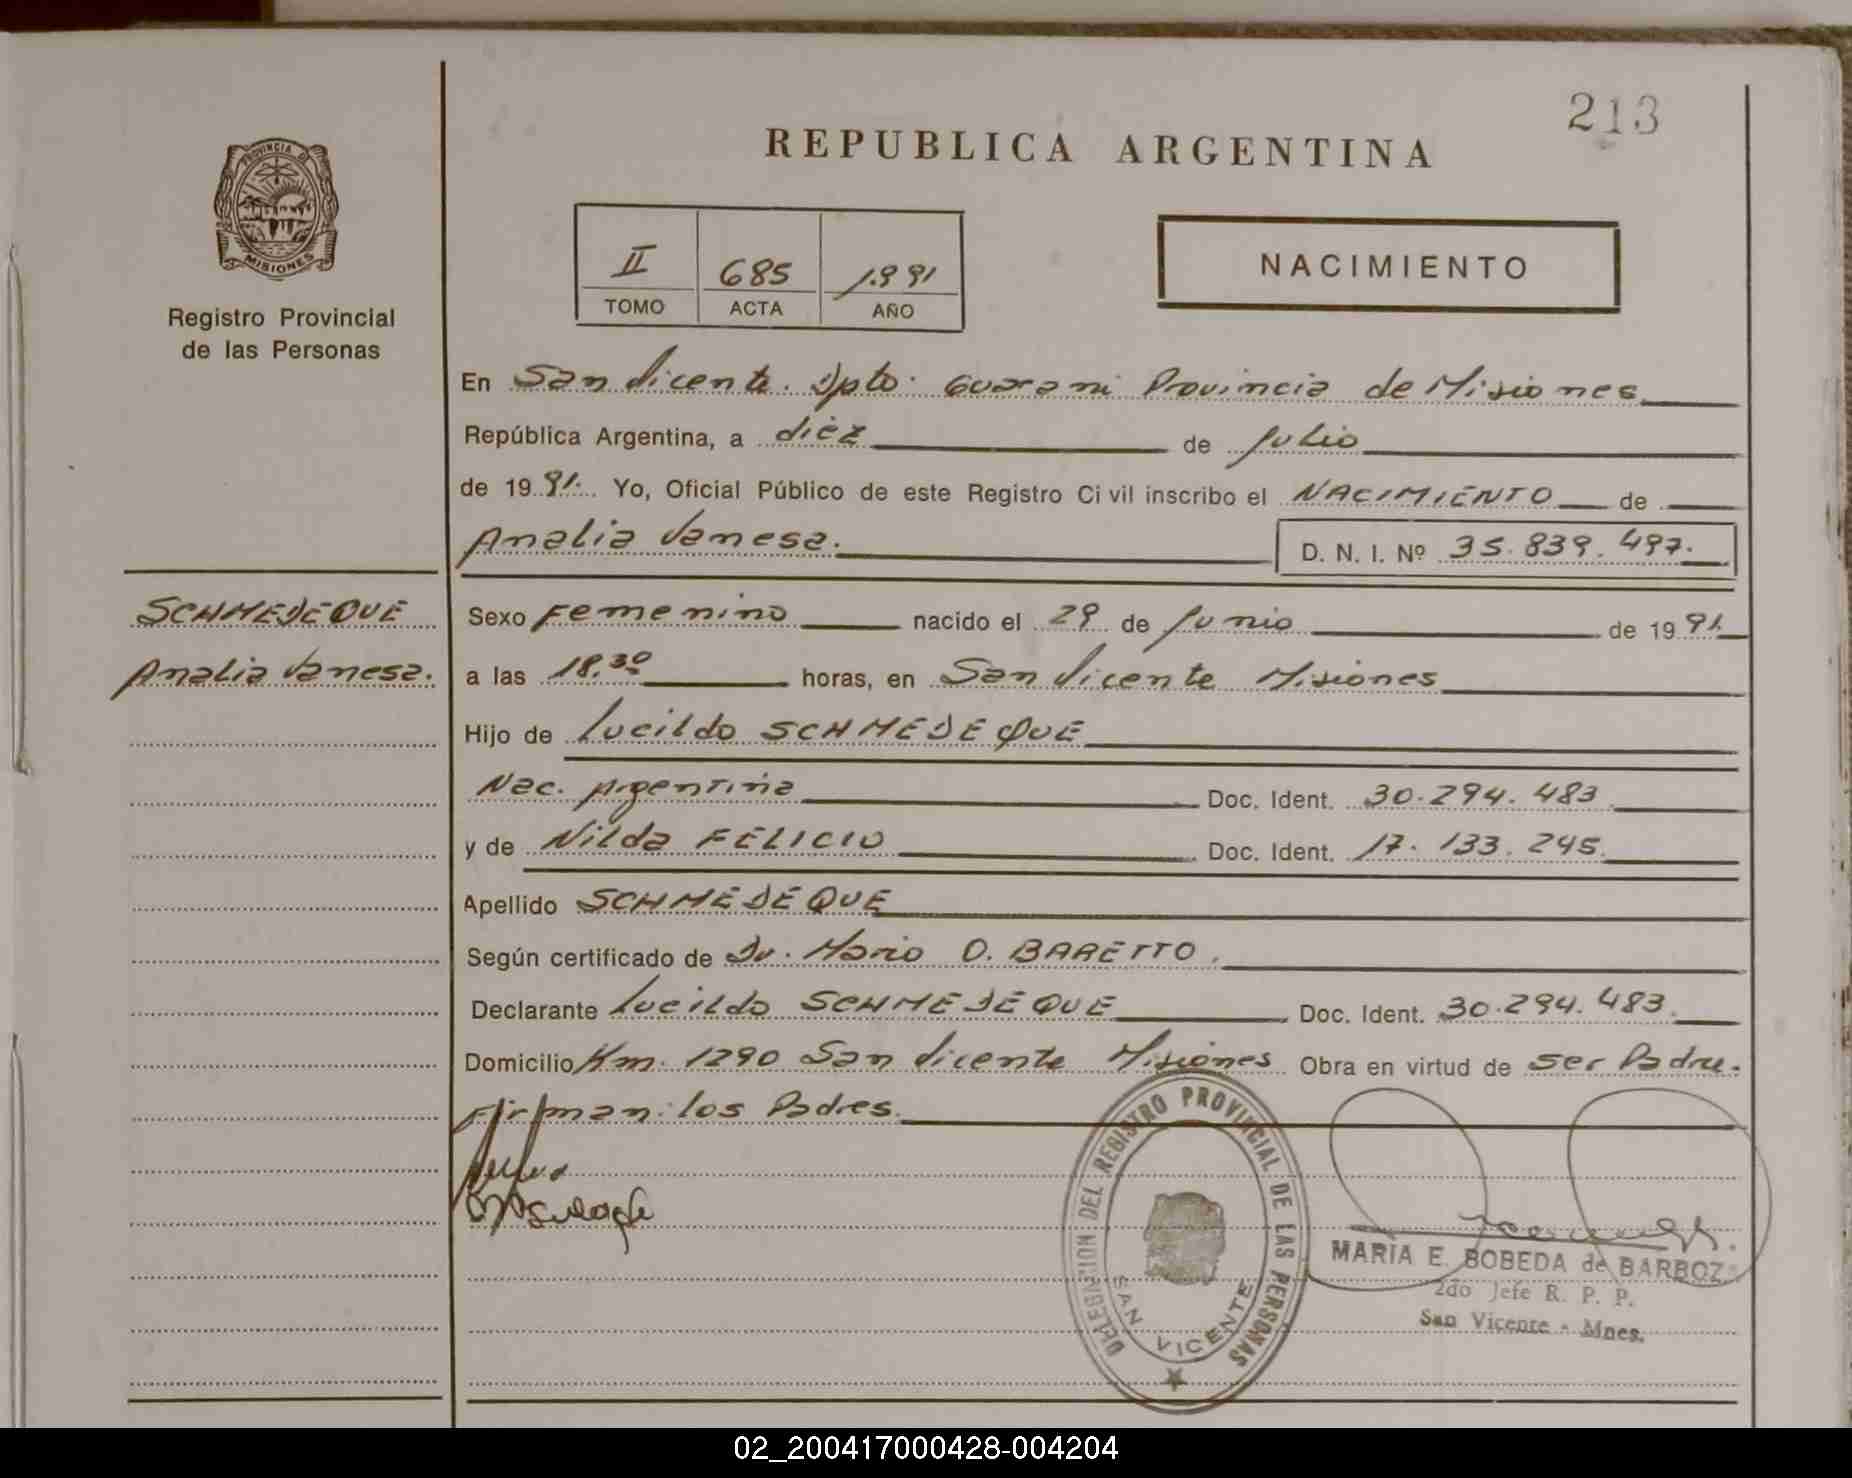 213
REPUBLICA ARGENTINA
PROVINCIA DE
MISIONES
Registro Provincial
de las Personas
II 685 1.991
TOMO ACTA AÑO
NACIMIENTO
En San Vicente. Dpto. Guarani Provincia de Misiones
República Argentina, a diez de Julio
de 19 91. Yo, Oficial Público de este Registro Civil inscribo el NACIMIENTO de
Analia Vanesa. D. N. I. Nº 35.839.497.
SCHMEDEQUE
Analia Vanesa.
Sexo Femenino nacido el 29 de Junio de 19 91.
a las 18.30 horas, en San Vicente Misiones
Hijo de Lucildo SCHMEDEQUE
Nac. Argentina Doc. Ident. 30.294.483
y de Nilda FELICIO Doc. Ident. 17.133.245.
Apellido SCHMEDEQUE
Según certificado de Dr. Mario O. BARETTO.
Declarante Lucildo SCHMEDEQUE Doc. Ident. 30.294.483.
Domicilio Km. 1290 San Vicente Misiones Obra en virtud de ser Padre.
Firman: los Padres.
DELEGACION DEL REGISTRO PROVINCIAL DE LAS PERSONAS
SAN VICENTE
MARIA E. BOBEDA de BARBOZ
2do Jefe R. P. P.
San Vicente - Mnes.
02_200417000428-004204